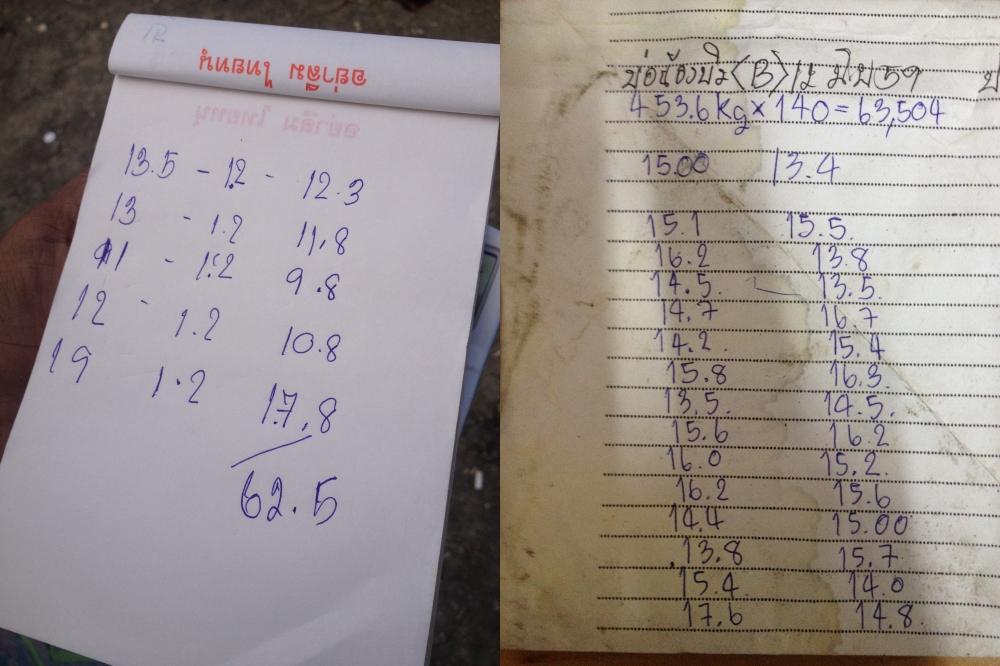 อย่าลืม ไทยทนุ
13.5 - 1.2 - 12.3
13 - 1.2 11.8
11 - 1.2 9.8
12 - 1.2 10.8
19 1.2 17.8
62.5
(B) 12 มี.ย 59
453.6 kg × 140 = 63,504
15.00 13.4
15.1 15.5.
16.2 13.8
14.5. 13.5.
14.7 16.7
14.2. 15.4
15.8 16.3.
13.5. 14.5.
15.6 16.2
16.0 15.2.
16.2 15.6
14.4 15.00
13.8 15.7
15.4. 14.0
17.6 14.8.